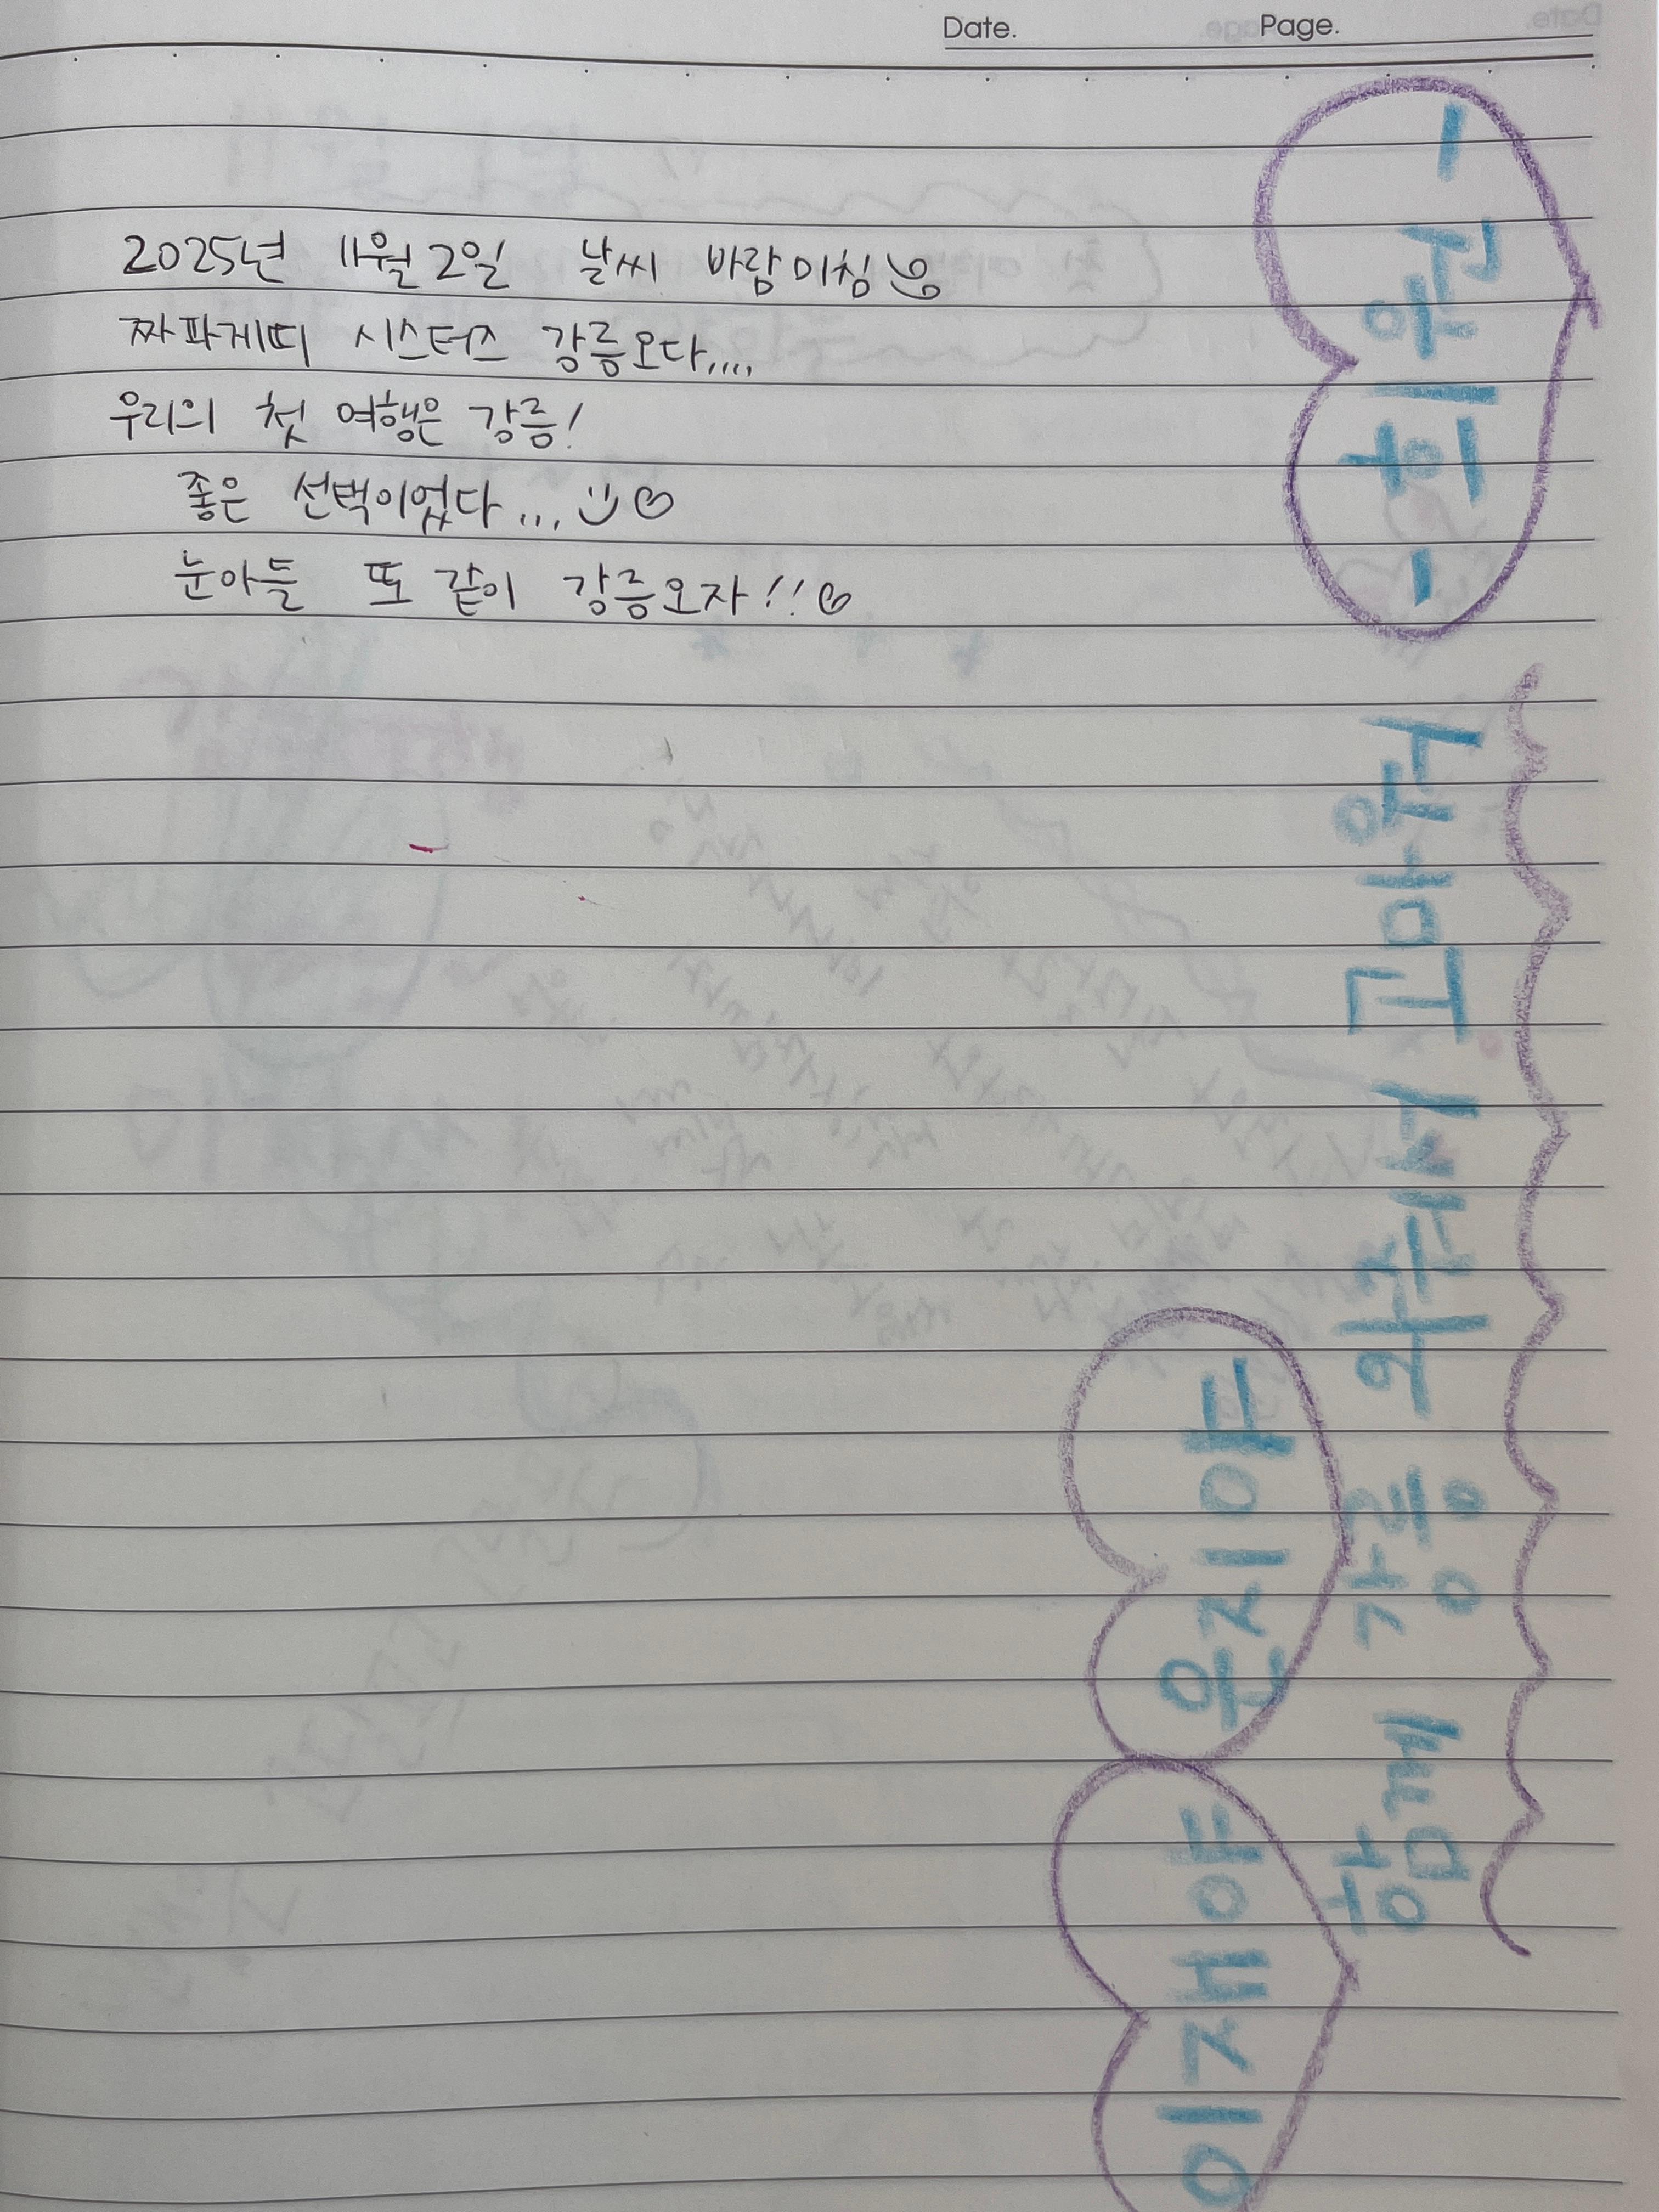 2025년 11월 2일 날씨 바람미침
짜파게띠 시스터즈 강릉오다....
우리의 첫 여행은 강릉!
좋은 선택이었다...
눈아들 또 같이 강릉오자!!
은지야
함께 강릉 와줘서 고마워
-희원-